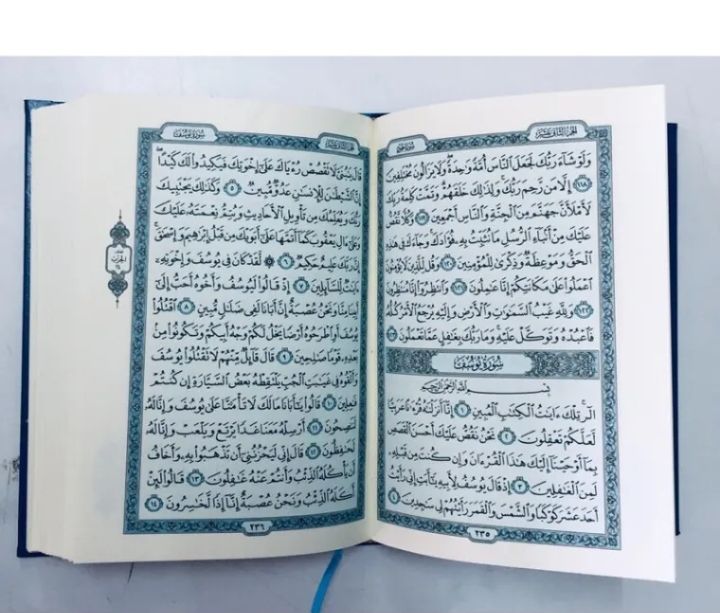 الجزء الثاني عشر
سورة هود
وَلَوْ شَآءَ رَبُّكَ لَجَعَلَ ٱلنَّاسَ أُمَّةً وَٰحِدَةً ۖ وَلَا يَزَالُونَ مُخْتَلِفِينَ
١١٨ إِلَّا مَن رَّحِمَ رَبُّكَ ۚ وَلِذَٰلِكَ خَلَقَهُمْ ۗ وَتَمَّتْ كَلِمَةُ رَبِّكَ
لَأَمْلَأَنَّ جَهَنَّمَ مِنَ ٱلْجِنَّةِ وَٱلنَّاسِ أَجْمَعِينَ ١١٩ وَكُلًّا نَّقُصُّ
عَلَيْكَ مِنْ أَنۢبَآءِ ٱلرُّسُلِ مَا نُثَبِّتُ بِهِۦ فُؤَادَكَ ۚ وَجَآءَكَ فِى هَٰذِهِ
ٱلْحَقُّ وَمَوْعِظَةٌ وَذِكْرَىٰ لِلْمُؤْمِنِينَ ١٢٠ وَقُل لِّلَّذِينَ لَا يُؤْمِنُونَ
ٱعْمَلُوا۟ عَلَىٰ مَكَانَتِكُمْ إِنَّا عَٰمِلُونَ ١٢١ وَٱنتَظِرُوٓا۟ إِنَّا مُنتَظِرُونَ
١٢٢ وَلِلَّهِ غَيْبُ ٱلسَّمَٰوَٰتِ وَٱلْأَرْضِ وَإِلَيْهِ يُرْجَعُ ٱلْأَمْرُ كُلُّهُۥ
فَٱعْبُدْهُ وَتَوَكَّلْ عَلَيْهِ ۚ وَمَا رَبُّكَ بِغَٰفِلٍ عَمَّا تَعْمَلُونَ ١٢٣
سُورَةُ يُوسُفَ
بِسْمِ ٱللَّهِ ٱلرَّحْمَٰنِ ٱلرَّحِيمِ
الٓر ۚ تِلْكَ ءَايَٰتُ ٱلْكِتَٰبِ ٱلْمُبِينِ ١ إِنَّآ أَنزَلْنَٰهُ قُرْءَٰنًا عَرَبِيًّا
لَّعَلَّكُمْ تَعْقِلُونَ ٢ نَحْنُ نَقُصُّ عَلَيْكَ أَحْسَنَ ٱلْقَصَصِ
بِمَآ أَوْحَيْنَآ إِلَيْكَ هَٰذَا ٱلْقُرْءَانَ وَإِن كُنتَ مِن قَبْلِهِۦ
لَمِنَ ٱلْغَٰفِلِينَ ٣ إِذْ قَالَ يُوسُفُ لِأَبِيهِ يَٰٓأَبَتِ إِنِّى رَأَيْتُ
أَحَدَ عَشَرَ كَوْكَبًا وَٱلشَّمْسَ وَٱلْقَمَرَ رَأَيْتُهُمْ لِى سَٰجِدِينَ ٤
٢٣٥
الجزء الثاني عشر
سورة يوسف
قَالَ يَٰبُنَىَّ لَا تَقْصُصْ رُءْيَاكَ عَلَىٰٓ إِخْوَتِكَ فَيَكِيدُوا۟ لَكَ كَيْدًا ۖ
إِنَّ ٱلشَّيْطَٰنَ لِلْإِنسَٰنِ عَدُوٌّ مُّبِينٌ ٥ وَكَذَٰلِكَ يَجْتَبِيكَ
رَبُّكَ وَيُعَلِّمُكَ مِن تَأْوِيلِ ٱلْأَحَادِيثِ وَيُتِمُّ نِعْمَتَهُۥ عَلَيْكَ
وَعَلَىٰٓ ءَالِ يَعْقُوبَ كَمَآ أَتَمَّهَا عَلَىٰٓ أَبَوَيْكَ مِن قَبْلُ إِبْرَٰهِيمَ وَإِسْحَٰقَ ۚ
إِنَّ رَبَّكَ عَلِيمٌ حَكِيمٌ ٦ ۞ لَّقَدْ كَانَ فِى يُوسُفَ وَإِخْوَتِهِۦٓ
ءَايَٰتٌ لِّلسَّآئِلِينَ ٧ إِذْ قَالُوا۟ لَيُوسُفُ وَأَخُوهُ أَحَبُّ إِلَىٰٓ
أَبِينَا مِنَّا وَنَحْنُ عُصْبَةٌ إِنَّ أَبَانَا لَفِى ضَلَٰلٍ مُّبِينٍ ٨ ٱقْتُلُوا۟
يُوسُفَ أَوِ ٱطْرَحُوهُ أَرْضًا يَخْلُ لَكُمْ وَجْهُ أَبِيكُمْ وَتَكُونُوا۟ مِنۢ
بَعْدِهِۦ قَوْمًا صَٰلِحِينَ ٩ قَالَ قَآئِلٌ مِّنْهُمْ لَا تَقْتُلُوا۟ يُوسُفَ
وَأَلْقُوهُ فِى غَيَٰبَتِ ٱلْجُبِّ يَلْتَقِطْهُ بَعْضُ ٱلسَّيَّارَةِ إِن كُنتُمْ
فَٰعِلِينَ ١٠ قَالُوا۟ يَٰٓأَبَانَا مَا لَكَ لَا تَأْمَ۫نَّا عَلَىٰ يُوسُفَ وَإِنَّا لَهُۥ
لَنَٰصِحُونَ ١١ أَرْسِلْهُ مَعَنَا غَدًا يَرْتَعْ وَيَلْعَبْ وَإِنَّا لَهُۥ
لَحَٰفِظُونَ ١٢ قَالَ إِنِّى لَيَحْزُنُنِىٓ أَن تَذْهَبُوا۟ بِهِۦ وَأَخَافُ
أَن يَأْكُلَهُ ٱلذِّئْبُ وَأَنتُمْ عَنْهُ غَٰفِلُونَ ١٣ قَالُوا۟ لَئِنْ
أَكَلَهُ ٱلذِّئْبُ وَنَحْنُ عُصْبَةٌ إِنَّآ إِذًا لَّخَٰسِرُونَ ١٤
٢٣٦
الحزب